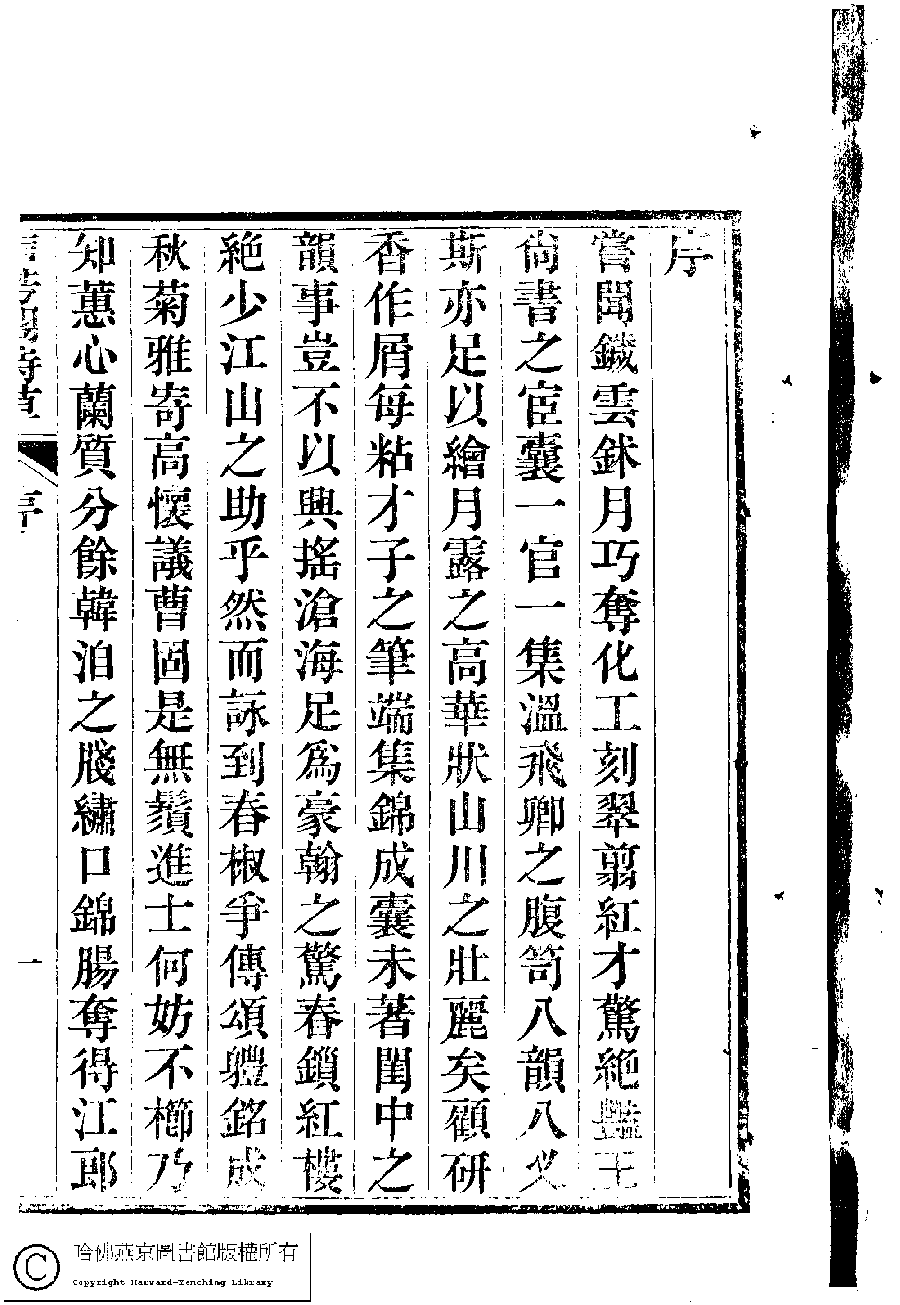 序
嘗聞鏤雲鉥月巧奪化工刻翠翦紅才驚絶豔王
尙書之宦囊一官一集溫飛卿之腹笥八韻八叉
斯亦足以繪月露之高華狀山川之壯麗矣顧研
香作屑每粘才子之筆端集錦成囊未著閨中之
韻事豈不以興搖滄海足爲豪翰之驚春鎖紅樓
絶少江山之助乎然而詠到春椒爭傳頌軆銘成
秋菊雅寄高懷議曹固是無鬚進士何妨不櫛乃
知蕙心蘭質分餘韓洎之牋繡口錦腸奪得江郎
詩草
序
一
哈佛燕京圖書館版權所有
Copyright Harvard-Yenching Library